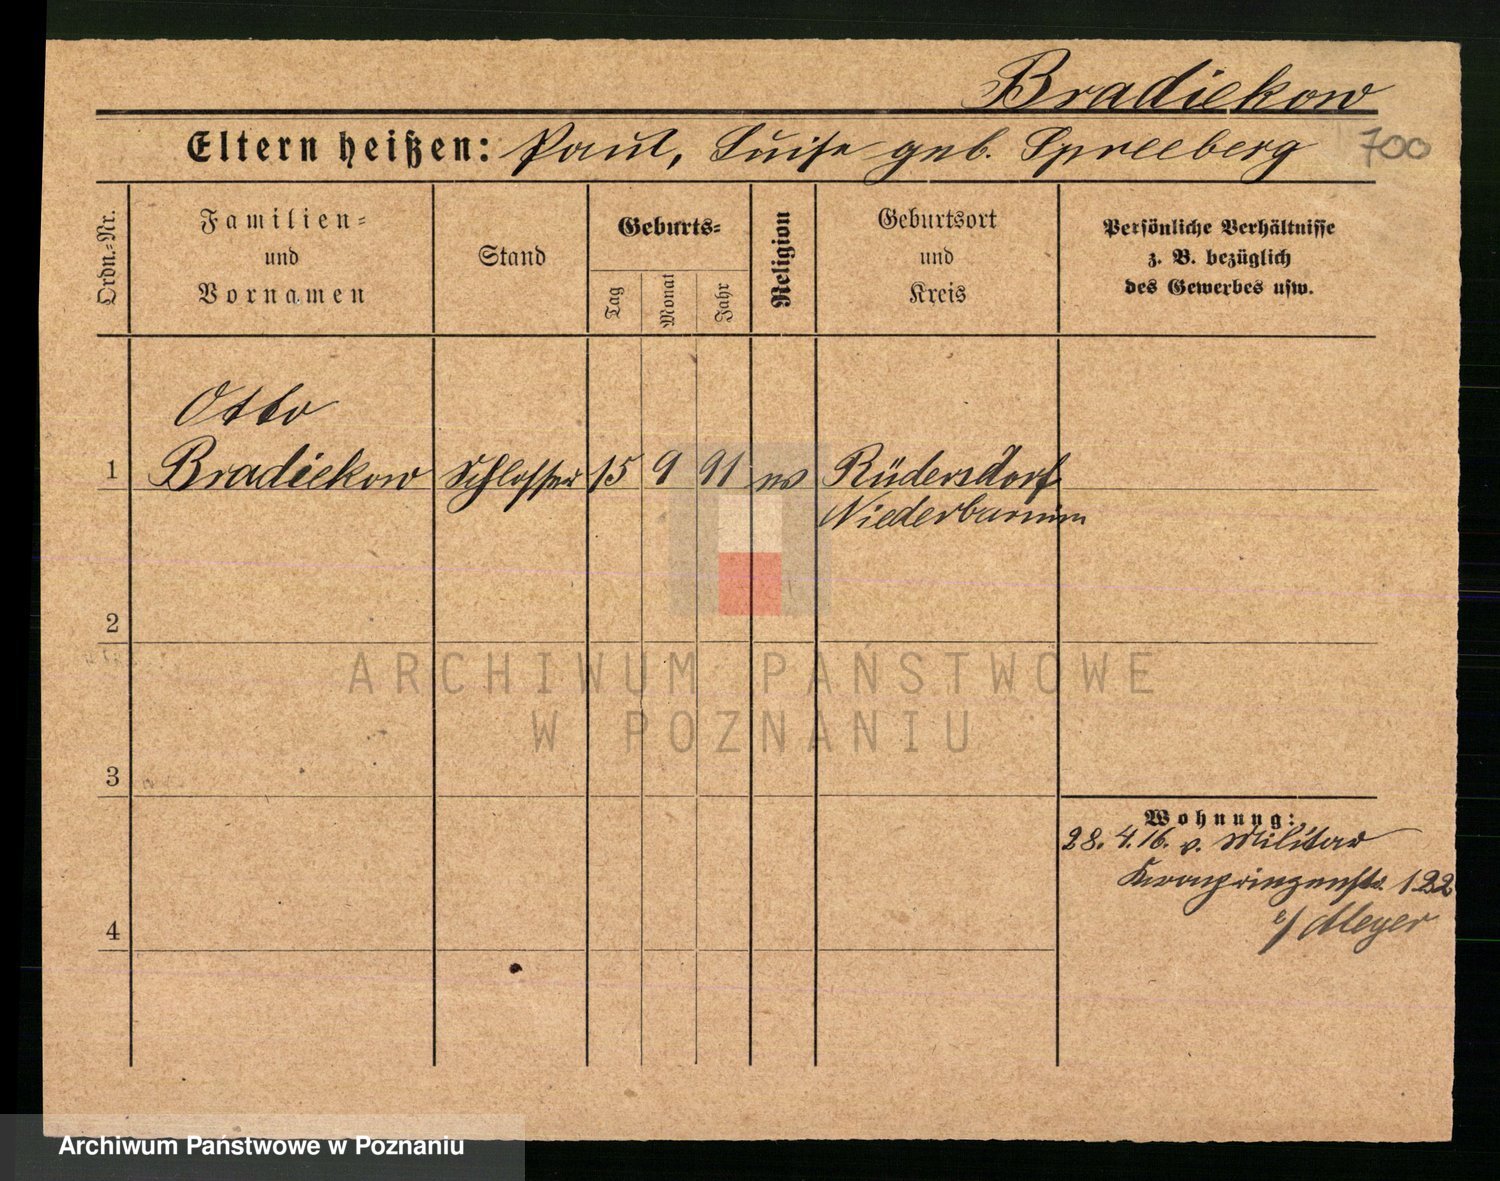 Bradiekow
Eltern heißen: Paul, Luise geb. Spreeberg 700
Ordn.-Nr.
Familien-
und
Vornamen
Stand
Geburts-
Tag
Monat
Jahr
Religion
Geburtsort
und
Kreis
Persönliche Verhältnisse
z. B. bezüglich
des Gewerbes usw.
Otto
1 Bradiekow Schlosser 15 9 91 ev Rüdersdorf
Niederbarnim
2
ARCHIWUM PAŃSTWOWE
W POZNANIU
3
Wohnung:
28. 4. 16. v. Militär
Kronprinzenstr. 122
b/ Meyer
4
Archiwum Państwowe w Poznaniu